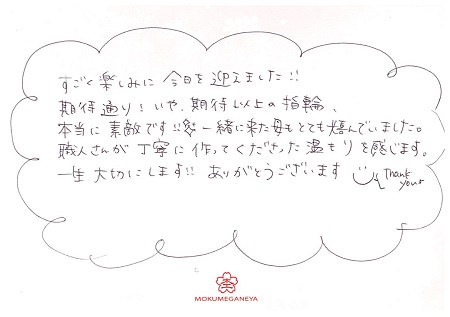 すごく楽しみに今日を迎えました!!
期待通り!いや、期待以上の指輪、
本当に素敵です!! 一緒に来た母もとても喜んでいました。
職人さんが丁寧に作ってくださった温もりを感じます。
一生大切にします!! ありがとうございます Thank you
MOKUMEGANEYA